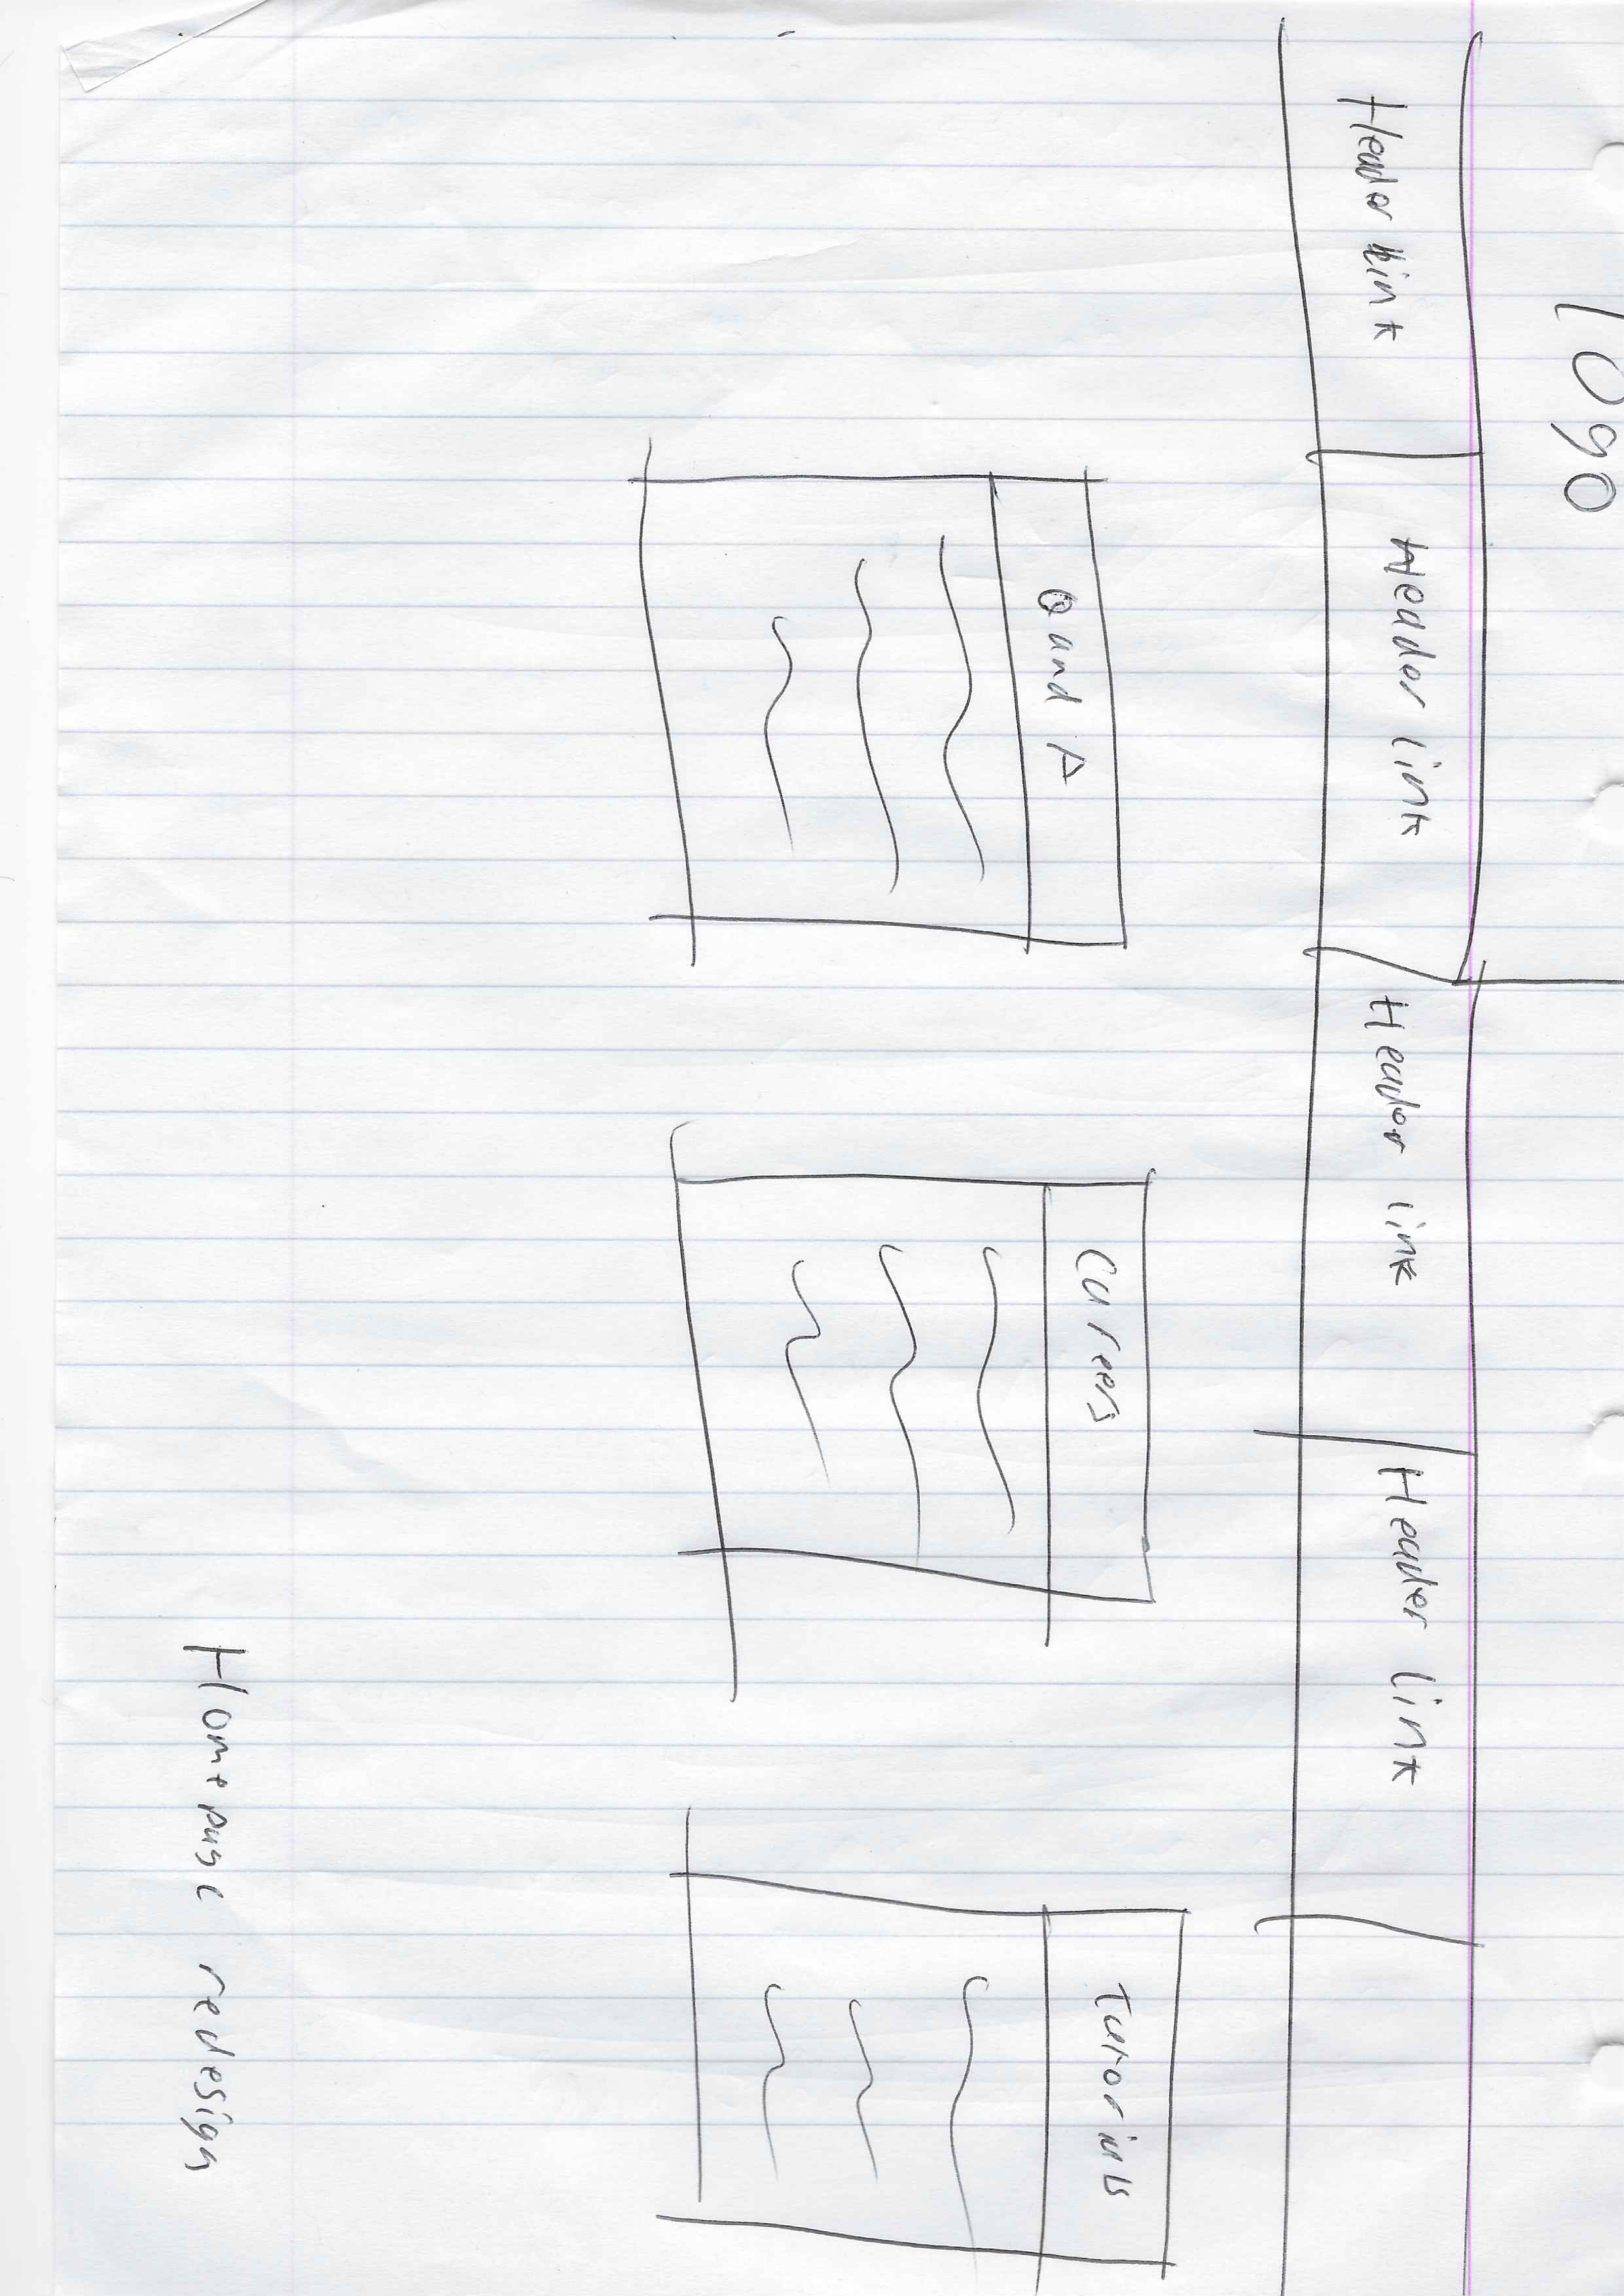 logo
Header link
Header link
Header link
Header link
Q and A
Careers
Tutorials
Homepage redesign